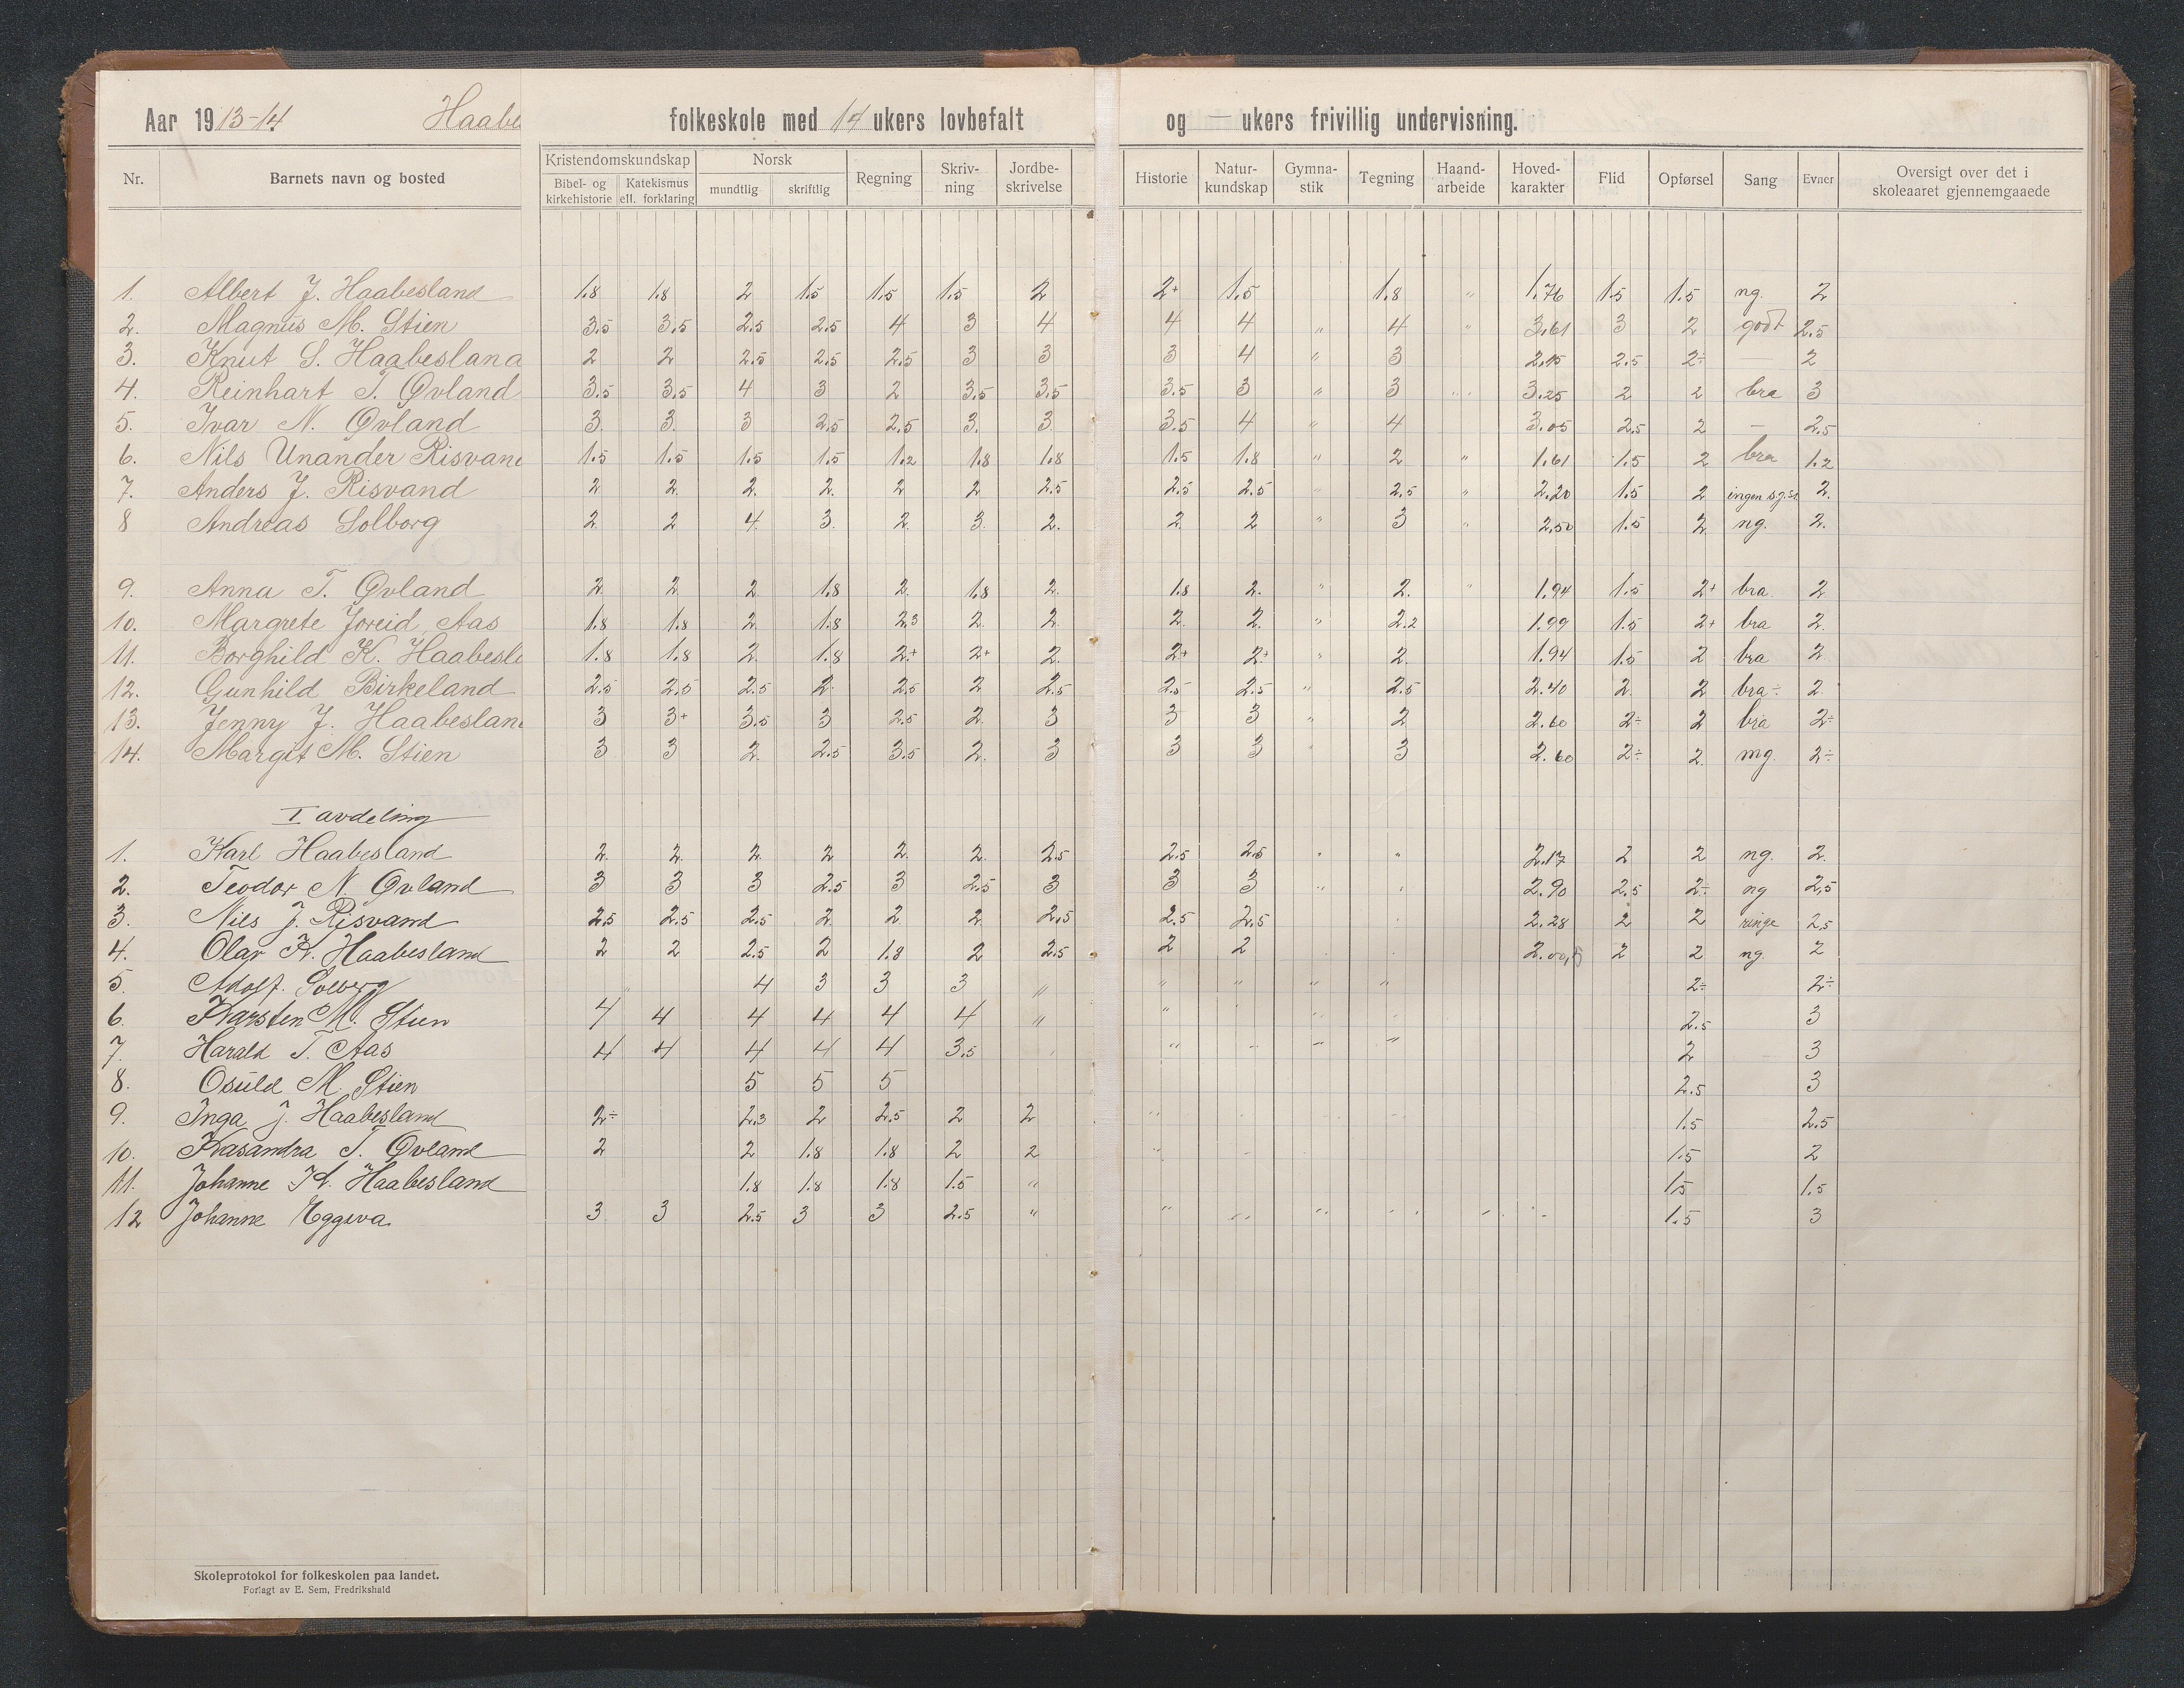 Aar 1913-14 Haabe folkeskole med 14 ukers lovbefalt og — ukers frivillig undervisning.
Nr. Barnets navn og bosted Kristendomskundskap Bibel- og kirkehistorie Katekismus ell. forklaring Norsk mundtlig skriftlig Regning Skriv-ning Jordbe-skrivelse Historie Natur-kundskap Gymna-stik Tegning Haand-arbeide Hoved-karakter Flid Opførsel Sang Evner Oversigt over det i skoleaaret gjennemgaaede
1. Albert J. Haabesland 1.8 1.8 2 1.5 1.5 1.5 2 2+ 1.5 1.8 " 1.76 1.5 1.5 ng. 2
2. Magnus M. Stien 3.5 3.5 2.5 2.5 4 3 4 4 4 " 4 " 3.61 3 2 godt 2.5
3. Knut S. Haabesland 2 2 2.5 2.5 2.5 3 3 3 4 " 3 2.15 2.5 2÷ — 2
4. Reinhart T. Øvland 3.5 3.5 4 3 2 3.5 3.5 3.5 3 " 3 " 3.25 2 2 bra 3
5. Ivar N. Øvland 3. 3. 3 2.5 2.5 3. 3. 3.5 4 " 4 3.05 2.5 2 — 2.5
6. Nils Unander Risvand 1.5 1.5 1.5 1.5 1.2 1.8 1.8 1.5 1.8 " 2 " 1.61 1.5 2 bra 1.2
7. Anders J. Risvand 2 2. 2. 2. 2 2 2.5 2.5 2.5 " 2.5 " 2.20 1.5 2 ingen 2.
8 Andreas Solborg 2. 2 4. 3. 2. 3. 2. 2 2 " 3 " 2.50 1.5 2 ng. 2.
9. Anna T. Øvland 2. 2. 2 1.8 2. 1.8 2. 1.8 2. " 2. " 1.94 1.5 2+ bra. 2
10. Margrete Joreid Aas 1.8 1.8 2. 1.8 2.3 2. 2. 2. 2. " 2.2 1.99 1.5 2+ bra 2.
11. Borghild K. Haabesl 1.8 1.8 2. 1.8 2+ 2+ 2. 2+ 2+ " 2. 1.94 1.5 2 bra 2
12. Gunhild Birkeland 2.5 2.5 2.5 2. 2.5 2 2.5 2.5 2.5 " 2.5 2.40 2. 2 bra÷ 2.
13. Jenny J. Haabeslan 3 3+ 3.5 3 2.5 2. 3 3 3 " 2 2.60 2÷ 2 bra 2÷
14. Margit M. Stien 3 3 2. 2.5 3.5 2. 3 3 3 " 3 2.60 2÷ 2. mg. 2÷
I avdeling
1. Karl Haabesland 2. 2. 2. 2. 2. 2. 2.5 2.5 2.5 " " 2.17 2 2 ng. 2.
2. Teodor N. Øvland 3 3 3 2.5 3 2.5 3 3 3 " " 2.90 2.5 2÷ ng 2,5
3. Nils J. Risvand 2.5 2.5 2.5 2. 2. 2. 2.5 2.5 2.5 2.28 2 2 ringe 2,5
4. Olav K. Haabesland 2 2 2.5 2 1.8 2 2.5 2 2 2.00 2 2 ng. 2
5. Adolf. Solberg " 4 3 3 3 " " " " " 2÷ 2÷
6. Karsten M. Stien 4 4 4 4 4 4 " " 2.5 3
7. Harald T. Aas 4 4 4 4 4 3.5 " " " " 2 3
8. Osuld M. Stien 5 5 5 2.5 3
9. Inga J. Haabesland 2÷ 2.3 2 2.5 2 2 " 1.5 2.5
10. Kasandra T. Øvland 2 2 1.8 1.8 2 2 " 1.5 2
11. Johanne K. Haabesland 1.8 1.8 1.8 1.5 " 1.5 1.5
12 Johanne Eggeva. 3 3 2.5 3 3 2.5 " " " " " " " 1.5 3
Skoleprotokol for folkeskolen paa landet.
Forlagt av E. Sem, Fredrikshald